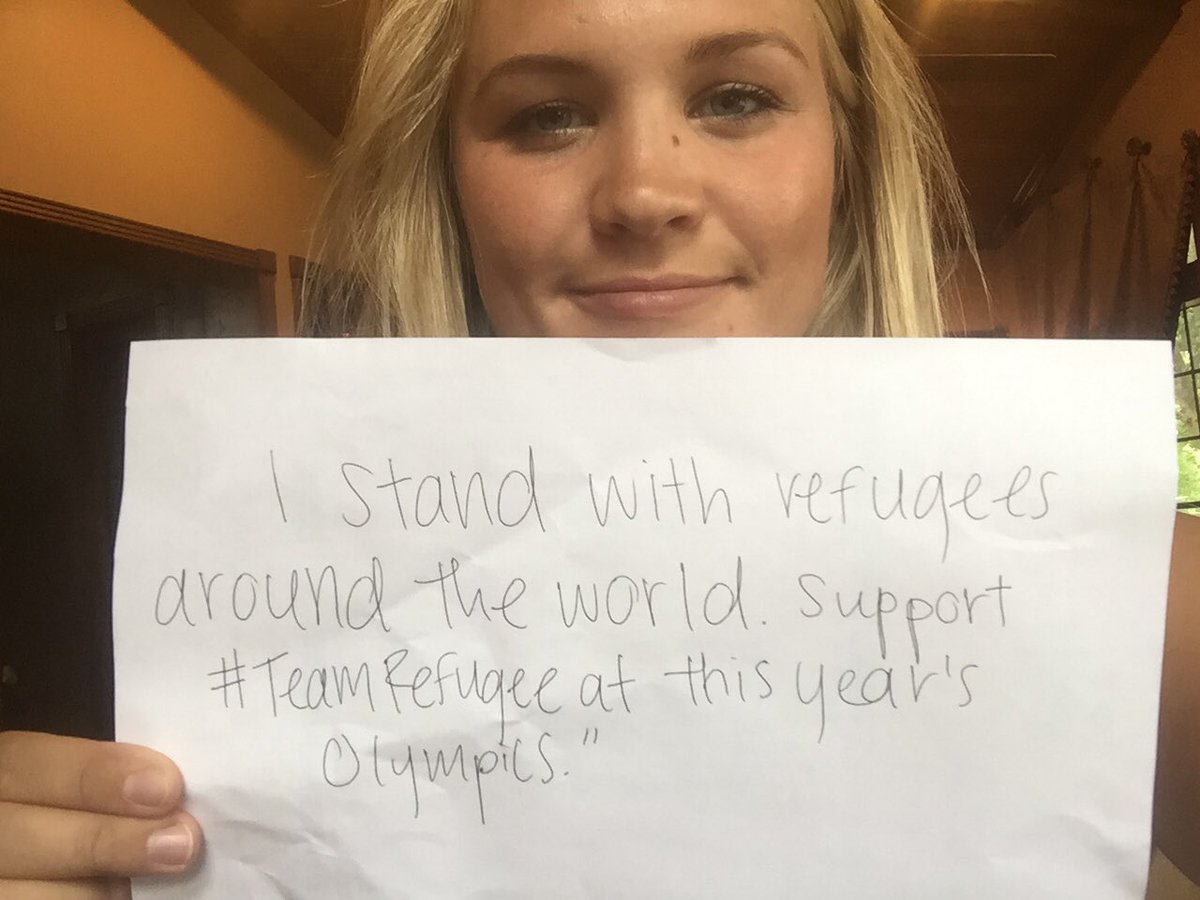 I stand with refugees
around the world. Support
#TeamRefugee at this year's
Olympics."